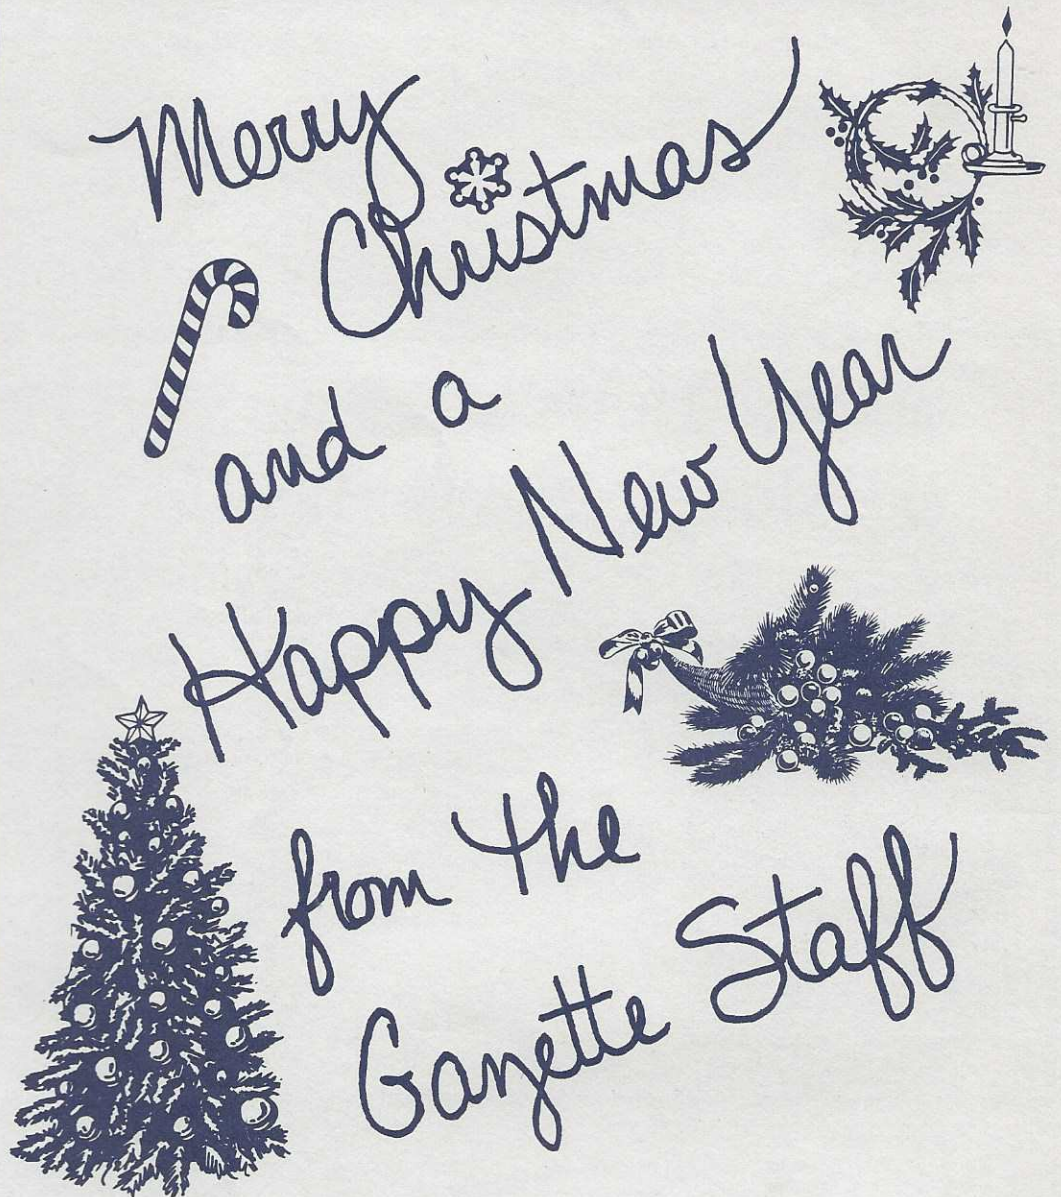 Merry
Christmas
and a
Happy New Year
from the
Gazette Staff